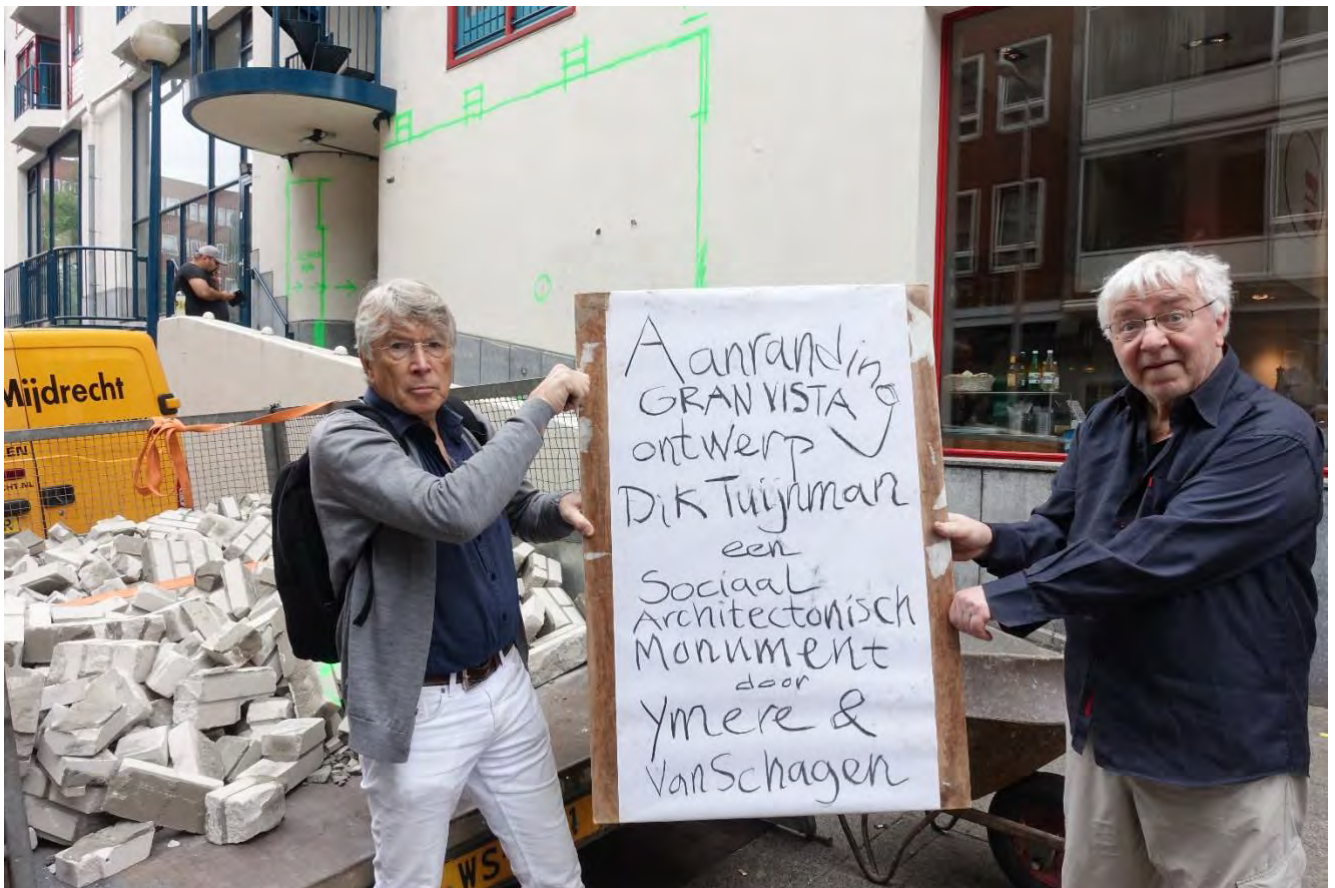 Mijdrecht
Aanranding
GRAN VISTA
ontwerp
Dik Tuijnman
een
Sociaal
Architectonisch
Monument
door
Ymere &
Van Schagen
WS